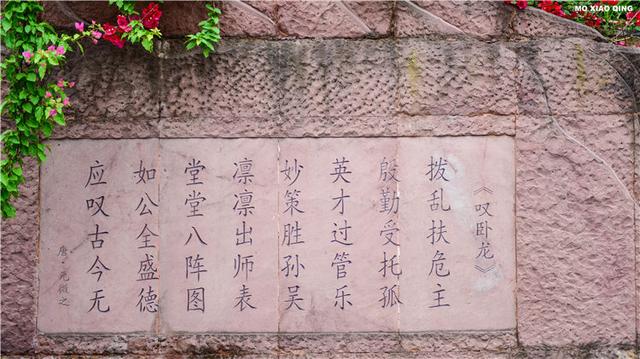 MO XIAO QING
《叹卧龙》
拨乱扶危主
殷勤受托孤
英才过管乐
妙策胜孙吴
凛凛出师表
堂堂八阵图
如公全盛德
应叹古今无
唐·元微之